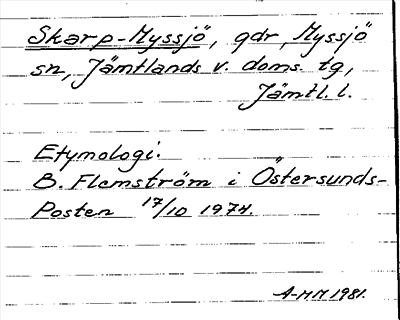 Skarp-Myssjö, gdr, Myssjö
sn, Jämtlands v. doms. tg,
Jämtl. l.
Etymologi:
B. Flemström i Östersunds-
Posten 17/10 1974.
A-MM 1981.